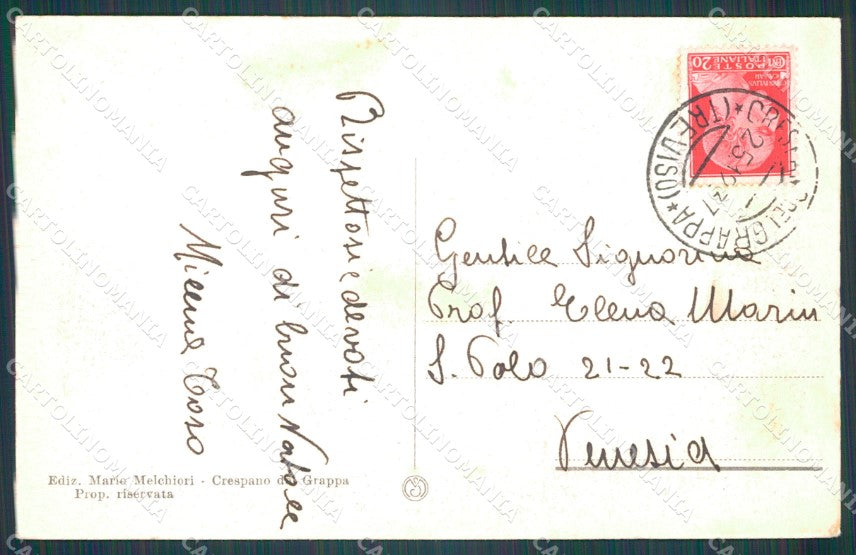 Rispettosi e devoti
auguri di buon Natale
Milena Toso
Gentile Signorina
Prof. Elena Marin
S. Polo 21-22
Venezia
Ediz. Mario Melchiori - Crespano del Grappa
Prop. riservata
POSTE
ITALIANE
20
CRESPANO DEL GRAPPA * (TREVISO) *
CARTOLINOMANIA